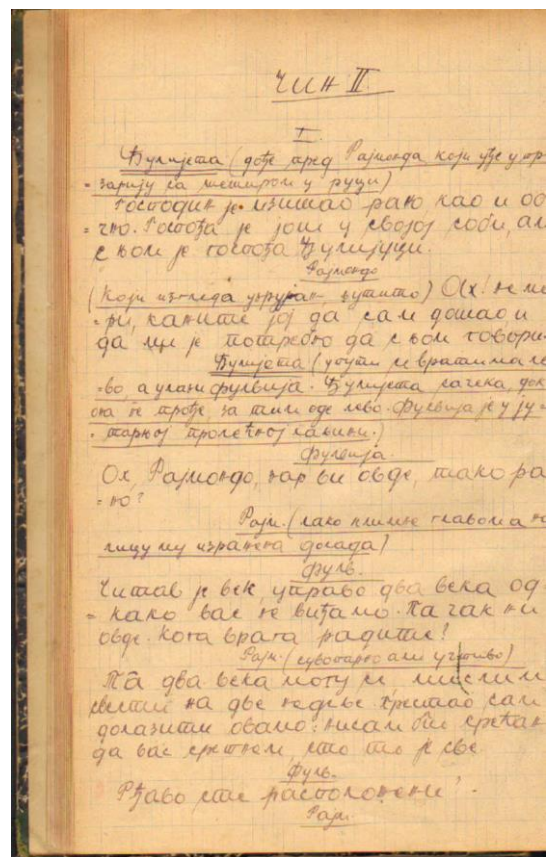 ЧИН II
I
Ђулијета (дође пред Рајмонда који уђе у тр-
зарију са шеширом у руци)
Господин је изишао рано као и об-
чно. Госпођа је још у својој соби, али
с њом је госпођа Ђулијуци.
Рајмондо
(који изгледа узрујан, љутито) Ох! не ма-
ри, кажите јој да сам дошао и
да ми је потребно да с њом говорим.
Ђулијета (упути се вратима ле-
во а улази Фулвија. Ђулијета сачека, док
она не прође, за тим оде лево. Фулвија је у ју-
тарњој пролећној хаљини.)
Фулвија.
Ох, Рајмондо, зар ви овде, тако ра-
но?
Рајм. (лако климне главом а на
лицу му изражена досада)
Фулв.
Читав је век, управо два века од-
како вас не виђамо. Па чак ни
овде. Кога врага радите?
Рајм. (суворно али учтиво)
Па два века могу се мислим
свести на две недеље. Престао сам
долазити овамо: нисам био срећан
да вас сретнем, што то је све.
Фулв.
Рђаво сте расположени?
Рајм.